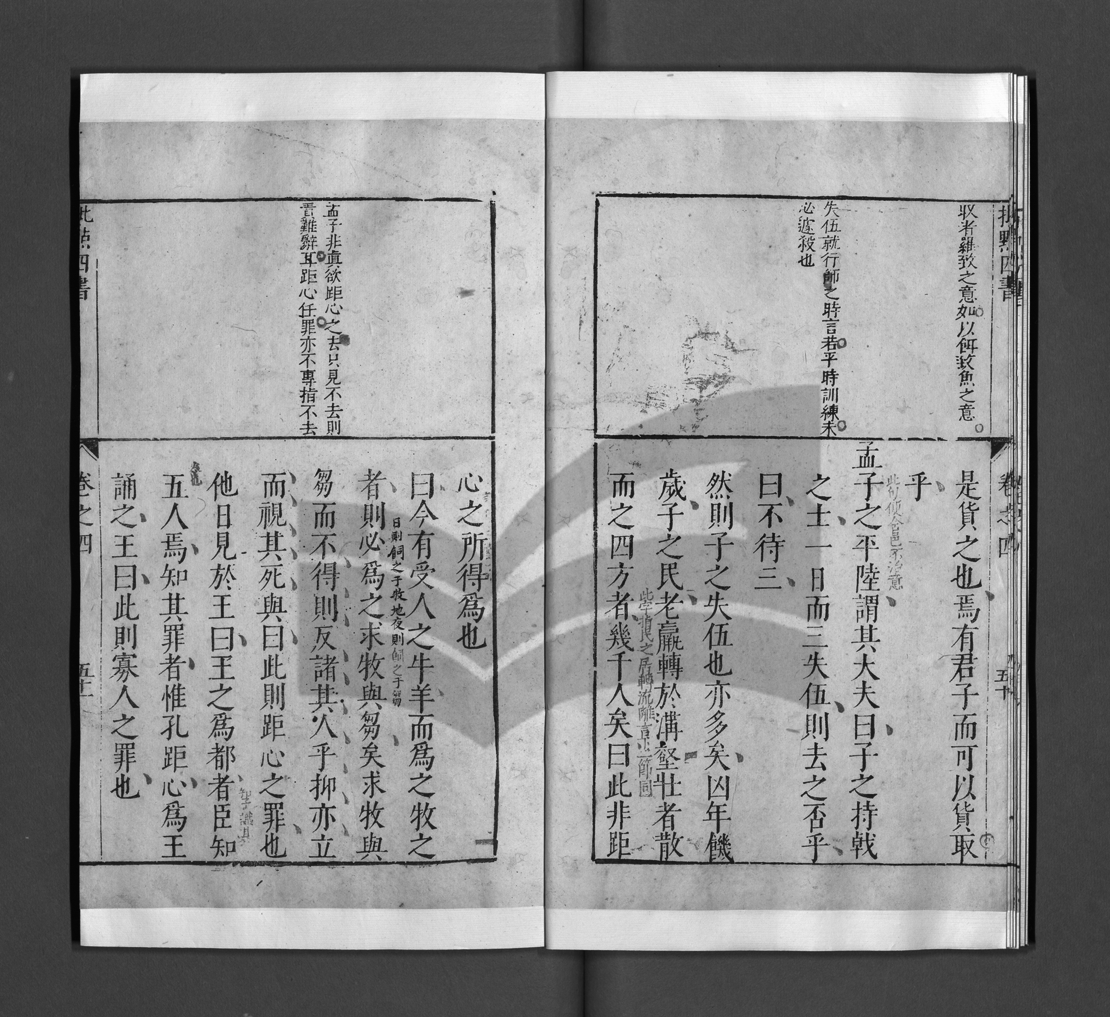 批點四書
卷之四
五十
取者羅致之意如以餌致魚之意
是貨之也焉有君子而可以貨取
乎
失伍就行師之時言若平時訓練未
必遽殺也
孟子之平陸謂其大夫曰子之持戟
之士一日而三失伍則去之否乎
曰不待三
然則子之失伍也亦多矣凶年饑
歲子之民老羸轉於溝壑壯者散
而之四方者幾千人矣曰此非距
心之所得爲也
曰今有受人之牛羊而爲之牧之
日則飼之于牧地夜則飼之于芻
者則必爲之求牧與芻矣求牧與
孟子非真欲距心之去只見不去則
芻而不得則反諸其人乎抑亦立
責難辭耳距心任罪亦不專指不去
而視其死與曰此則距心之罪也
他日見於王曰王之爲都者臣知
五人焉知其罪者惟孔距心爲王
誦之王曰此則寡人之罪也
批點四書
卷之四